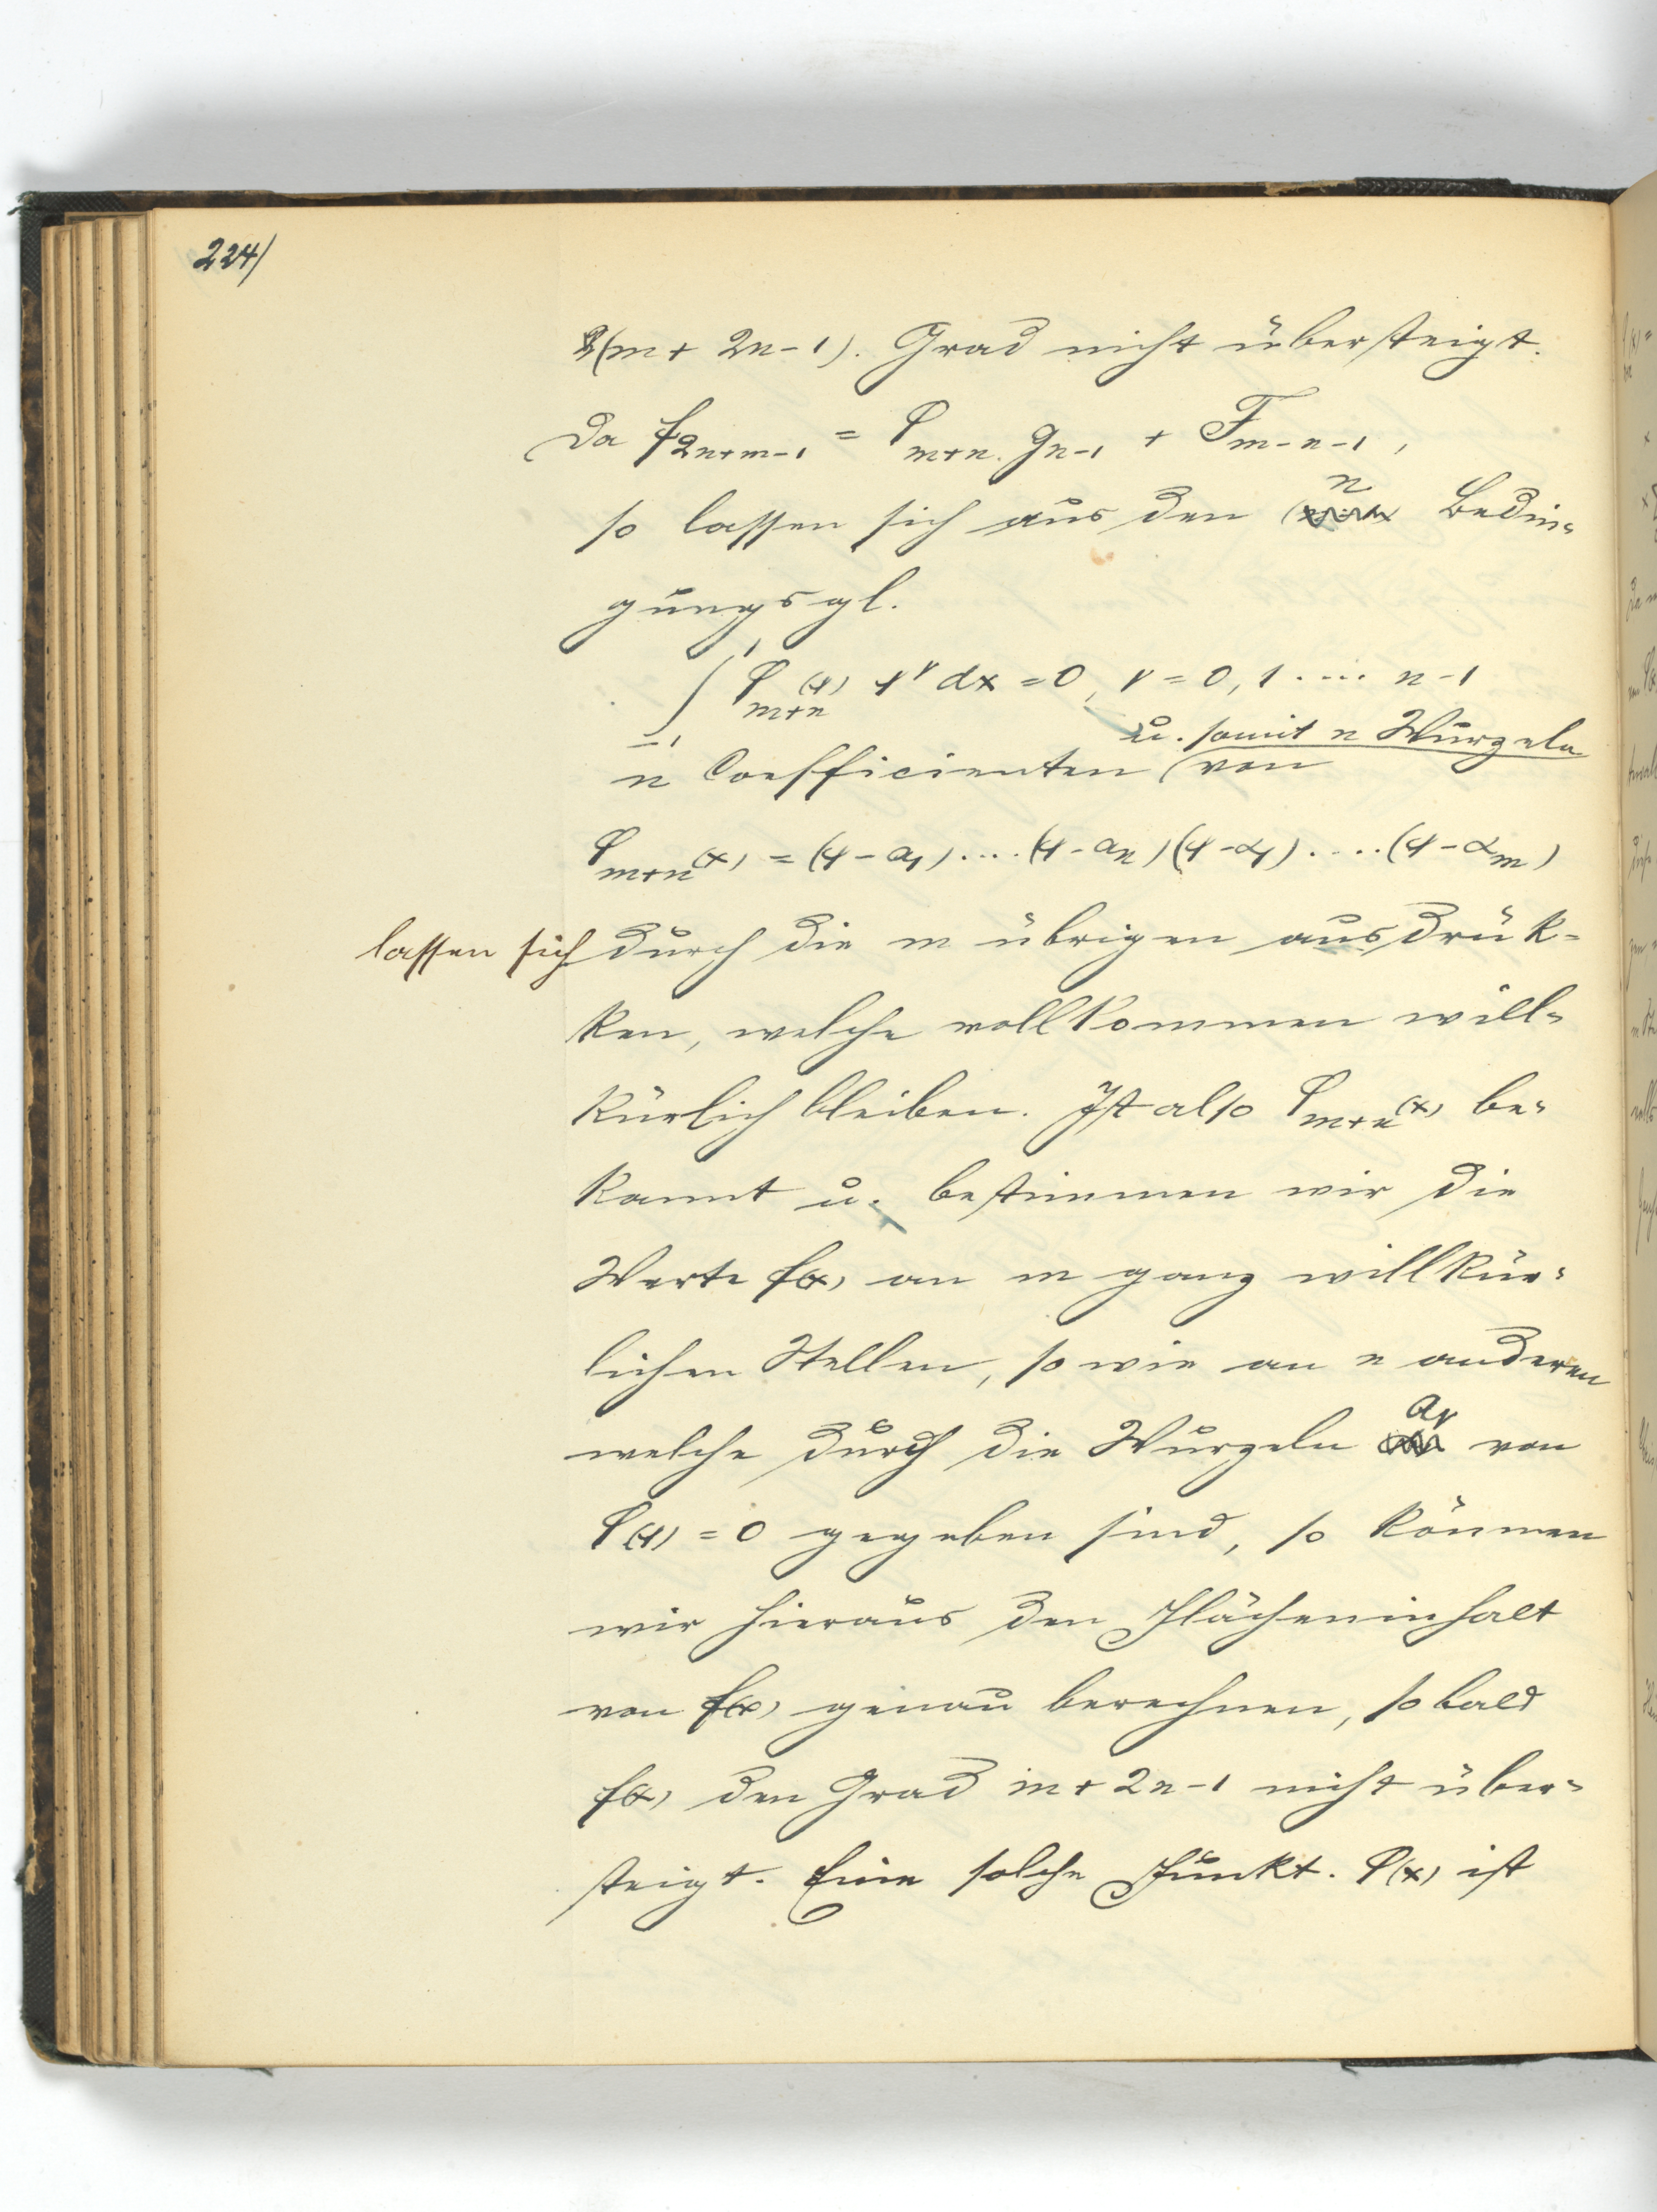 224/
2(m + 2n - 1). Grad nicht übersteigt.
Da f2n+m-1 = φm+n . gn-1 + Fm-n-1 ,
so lassen sich aus den n Bedin-
gungsgl.
∫₋₁¹ φm+n(x) xᵛ dx = 0, ν = 0, 1 .... n-1
u. somit n Wurzeln
n Coefficienten von
φm+n(x) = (x - a₁) .... (x - an) (x - α₁) .... (x - αm)
lassen sich durch die m übrigen ausdrük-
ken, welche vollkommen will-
kürlich bleiben. Ist also φm+n(x) be-
kannt u. bestimmen wir die
Werte f(x) an m ganz willkür-
lichen Stellen, so wie an n anderen
welche durch die Wurzeln aν von
φ(x) = 0 gegeben sind, so können
wir hieraus den Flächeninhalt
von f(x) genau berechnen, sobald
f(x) den Grad m + 2n - 1 nicht über-
steigt. Eine solche Funkt. φ(x) ist